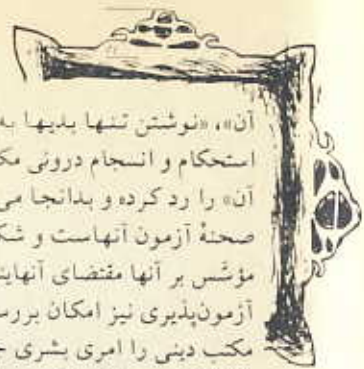 آن»، «نوشتن تنها بدیها به
استحکام و انسجام درونی مک
آن» را رد کرده و بدانجا می
صحنهٔ آزمون آنهاست و شک
مؤسَّس بر آنها مقتضای آنهاین
آزمون‌پذیری نیز امکان بررس
مکتب دینی را امری بشری